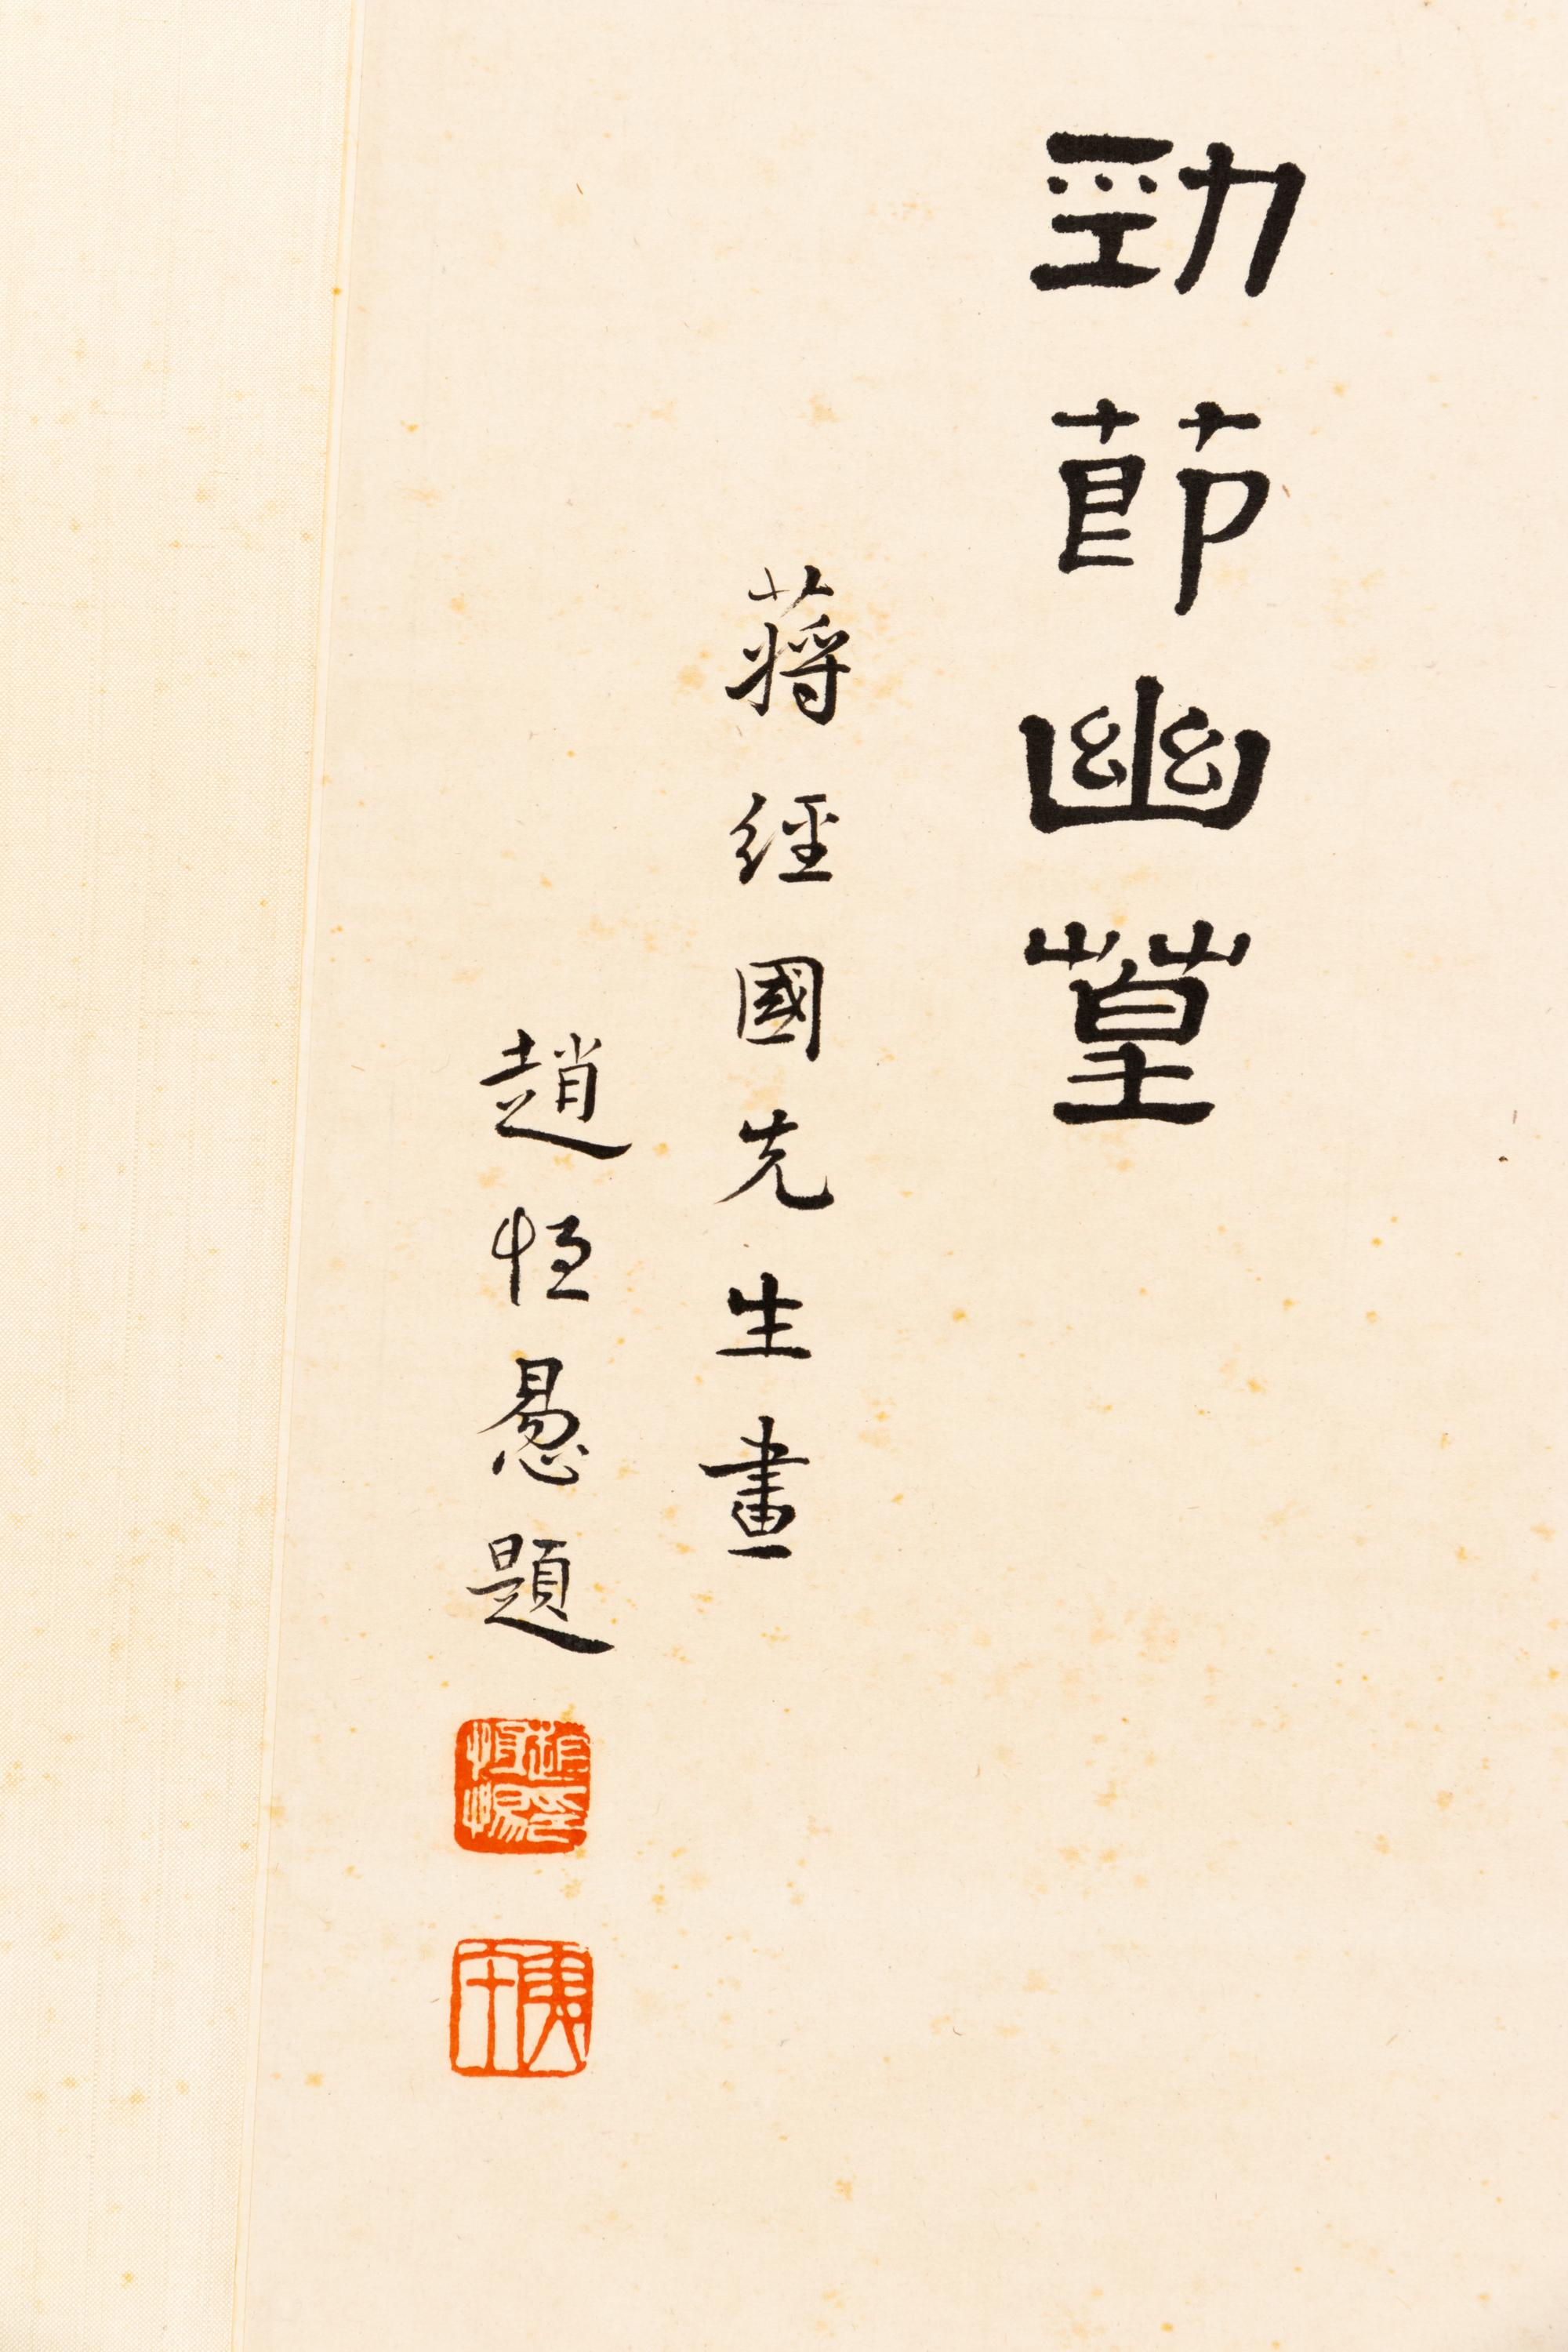 勁節幽篁
蔣經國先生畫
趙恒惖題
趙印恒惕
夷午